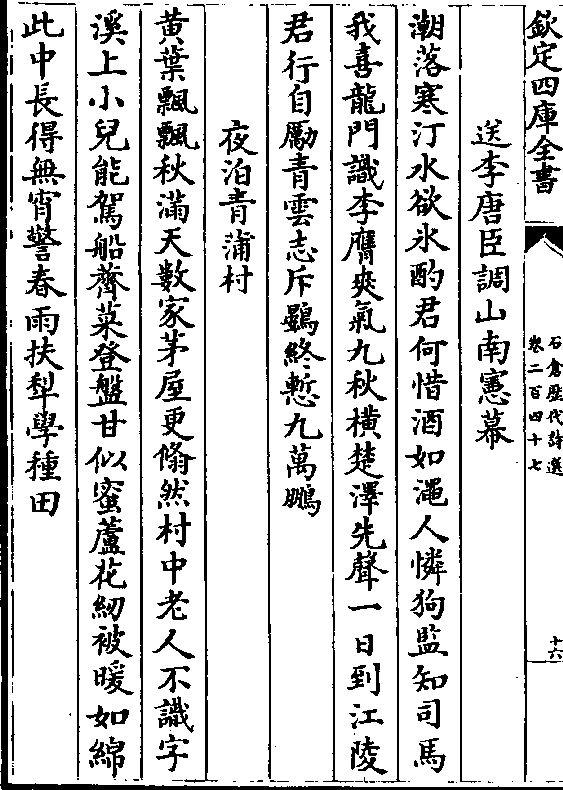 欽定四庫全書
石倉歷代詩選
卷二百四十七
十六
送李唐臣調山南憲幕
潮落寒汀水欲氷酌君何惜酒如澠人憐狗監知司馬
我喜龍門識李膺爽氣九秋横楚澤先聲一日到江陵
君行自勵青雲志斥鷃終慙九萬鵬
夜泊青蒲村
黄葉飄飄秋滿天數家茅屋更翛然村中老人不識字
溪上小兒能駕船薺菜登盤甘似蜜蘆花紉被暖如綿
此中長得無宵警春雨扶犁學種田